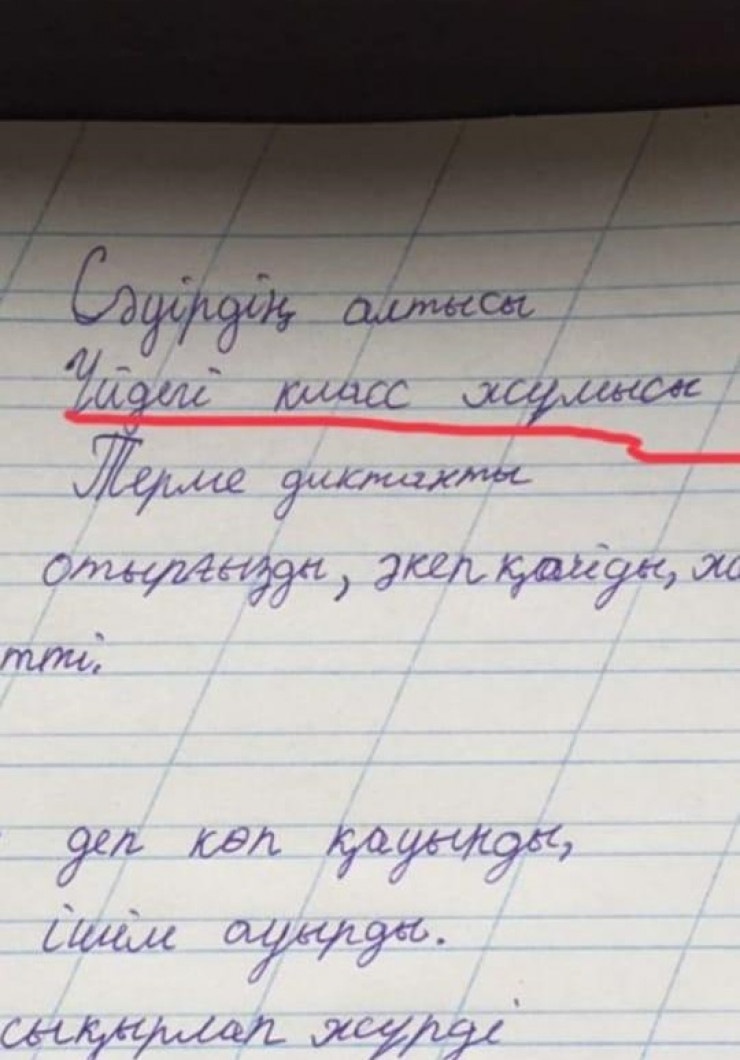 Сәуірдің алтысы
Үйдегі класс жұмысы
Терме диктанты
отырғызды, әкеп қойды,
тті.
деп көп қауынды,
ішім ауырды.
сықырлап жүрді